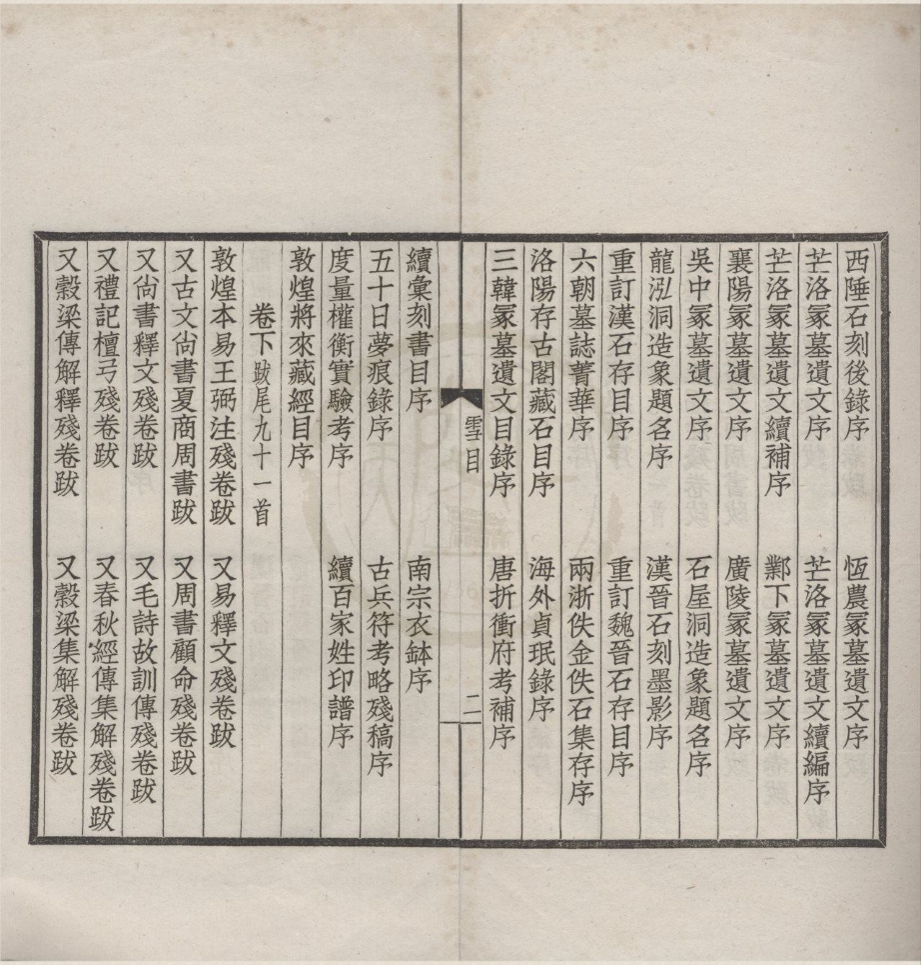 西陲石刻後錄序　恆農冢墓遺文序
芒洛冢墓遺文序　芒洛冢墓遺文續編序
芒洛冢墓遺文續補序　鄴下冢墓遺文序
襄陽冢墓遺文序　廣陵冢墓遺文序
吳中冢墓遺文序　石屋洞造象題名序
龍泓洞造象題名序　漢晉石刻墨影序
重訂漢石存目序　重訂魏晉石存目序
六朝墓誌菁華序　兩浙佚金佚石集存序
洛陽存古閣藏石目序　海外貞珉錄序
三韓冢墓遺文目錄序　唐折衝府考補序
雪目　二
續彙刻書目序　南宗衣鉢序
五十日夢痕錄序　古兵符考略殘稿序
度量權衡實驗考序　續百家姓印譜序
敦煌將來藏經目序
卷下跋尾九十一首
敦煌本易王弼注殘卷跋　又易釋文殘卷跋
又古文尙書夏商周書跋　又周書顧命殘卷跋
又尙書釋文殘卷跋　又毛詩故訓傳殘卷跋
又禮記檀弓殘卷跋　又春秋經傳集解殘卷跋
又穀梁傳解釋殘卷跋　又穀梁集解殘卷跋